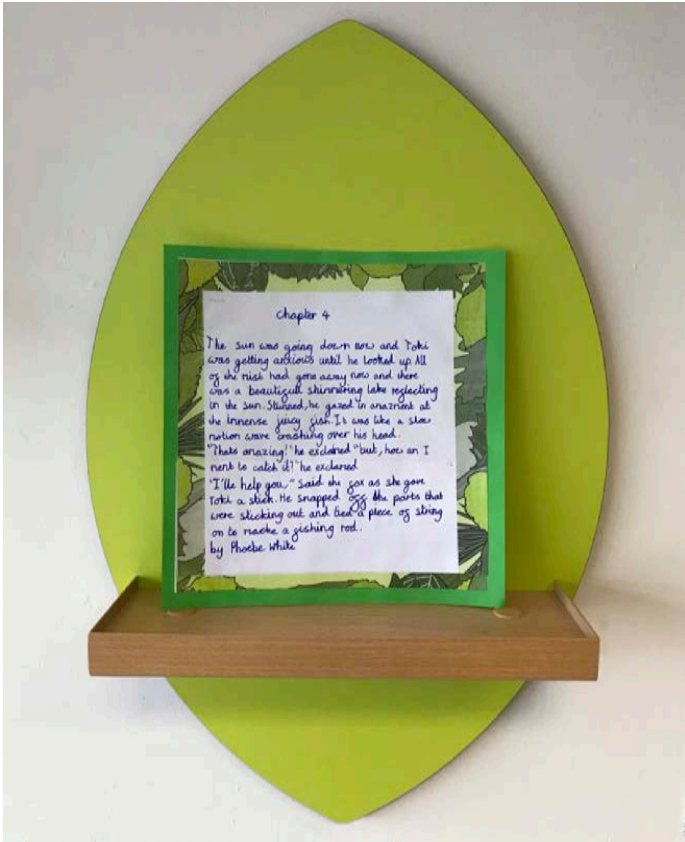 Chapter 4
The sun was going down now and Toki
was getting anxious until he looked up. All
of the mist had gone away now and there
was a beautiful shimmering lake reflecting
in the sun. Stunned, he gazed in amazment at
the immense juicy fish. It was like a slow
motion wave crashing over his head.
"Thats amazing!" he exclaimed "but, how am I
ment to catch it?" he exclaimed
"I'lle help you," said the fox as she gave
Toki a stick. He snapped off the parts that
were sticking out and tied a piece of string
on to make a fishing rod.
by Phoebe White